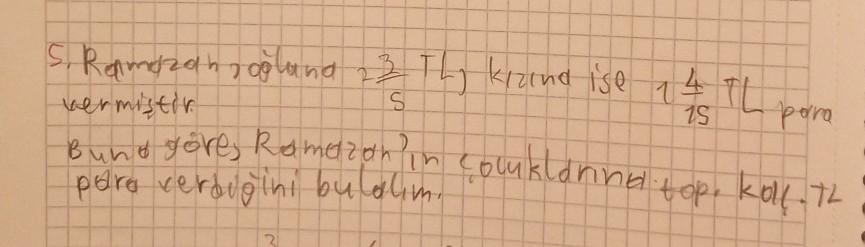 5. Ramazan, oğluna 2 3/5 TL, kızına ise 1 4/15 TL para
vermiştir.
Buna göre, Ramazan'ın çocuklarına top. kaç. TL
para verdiğini bulalım.